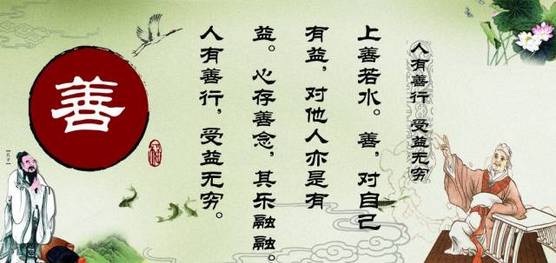 人有善行 受益无穷
上善若水。善，对自己
有益，对他人亦是有
益。心存善念，其乐融融。
人有善行，受益无穷。
善